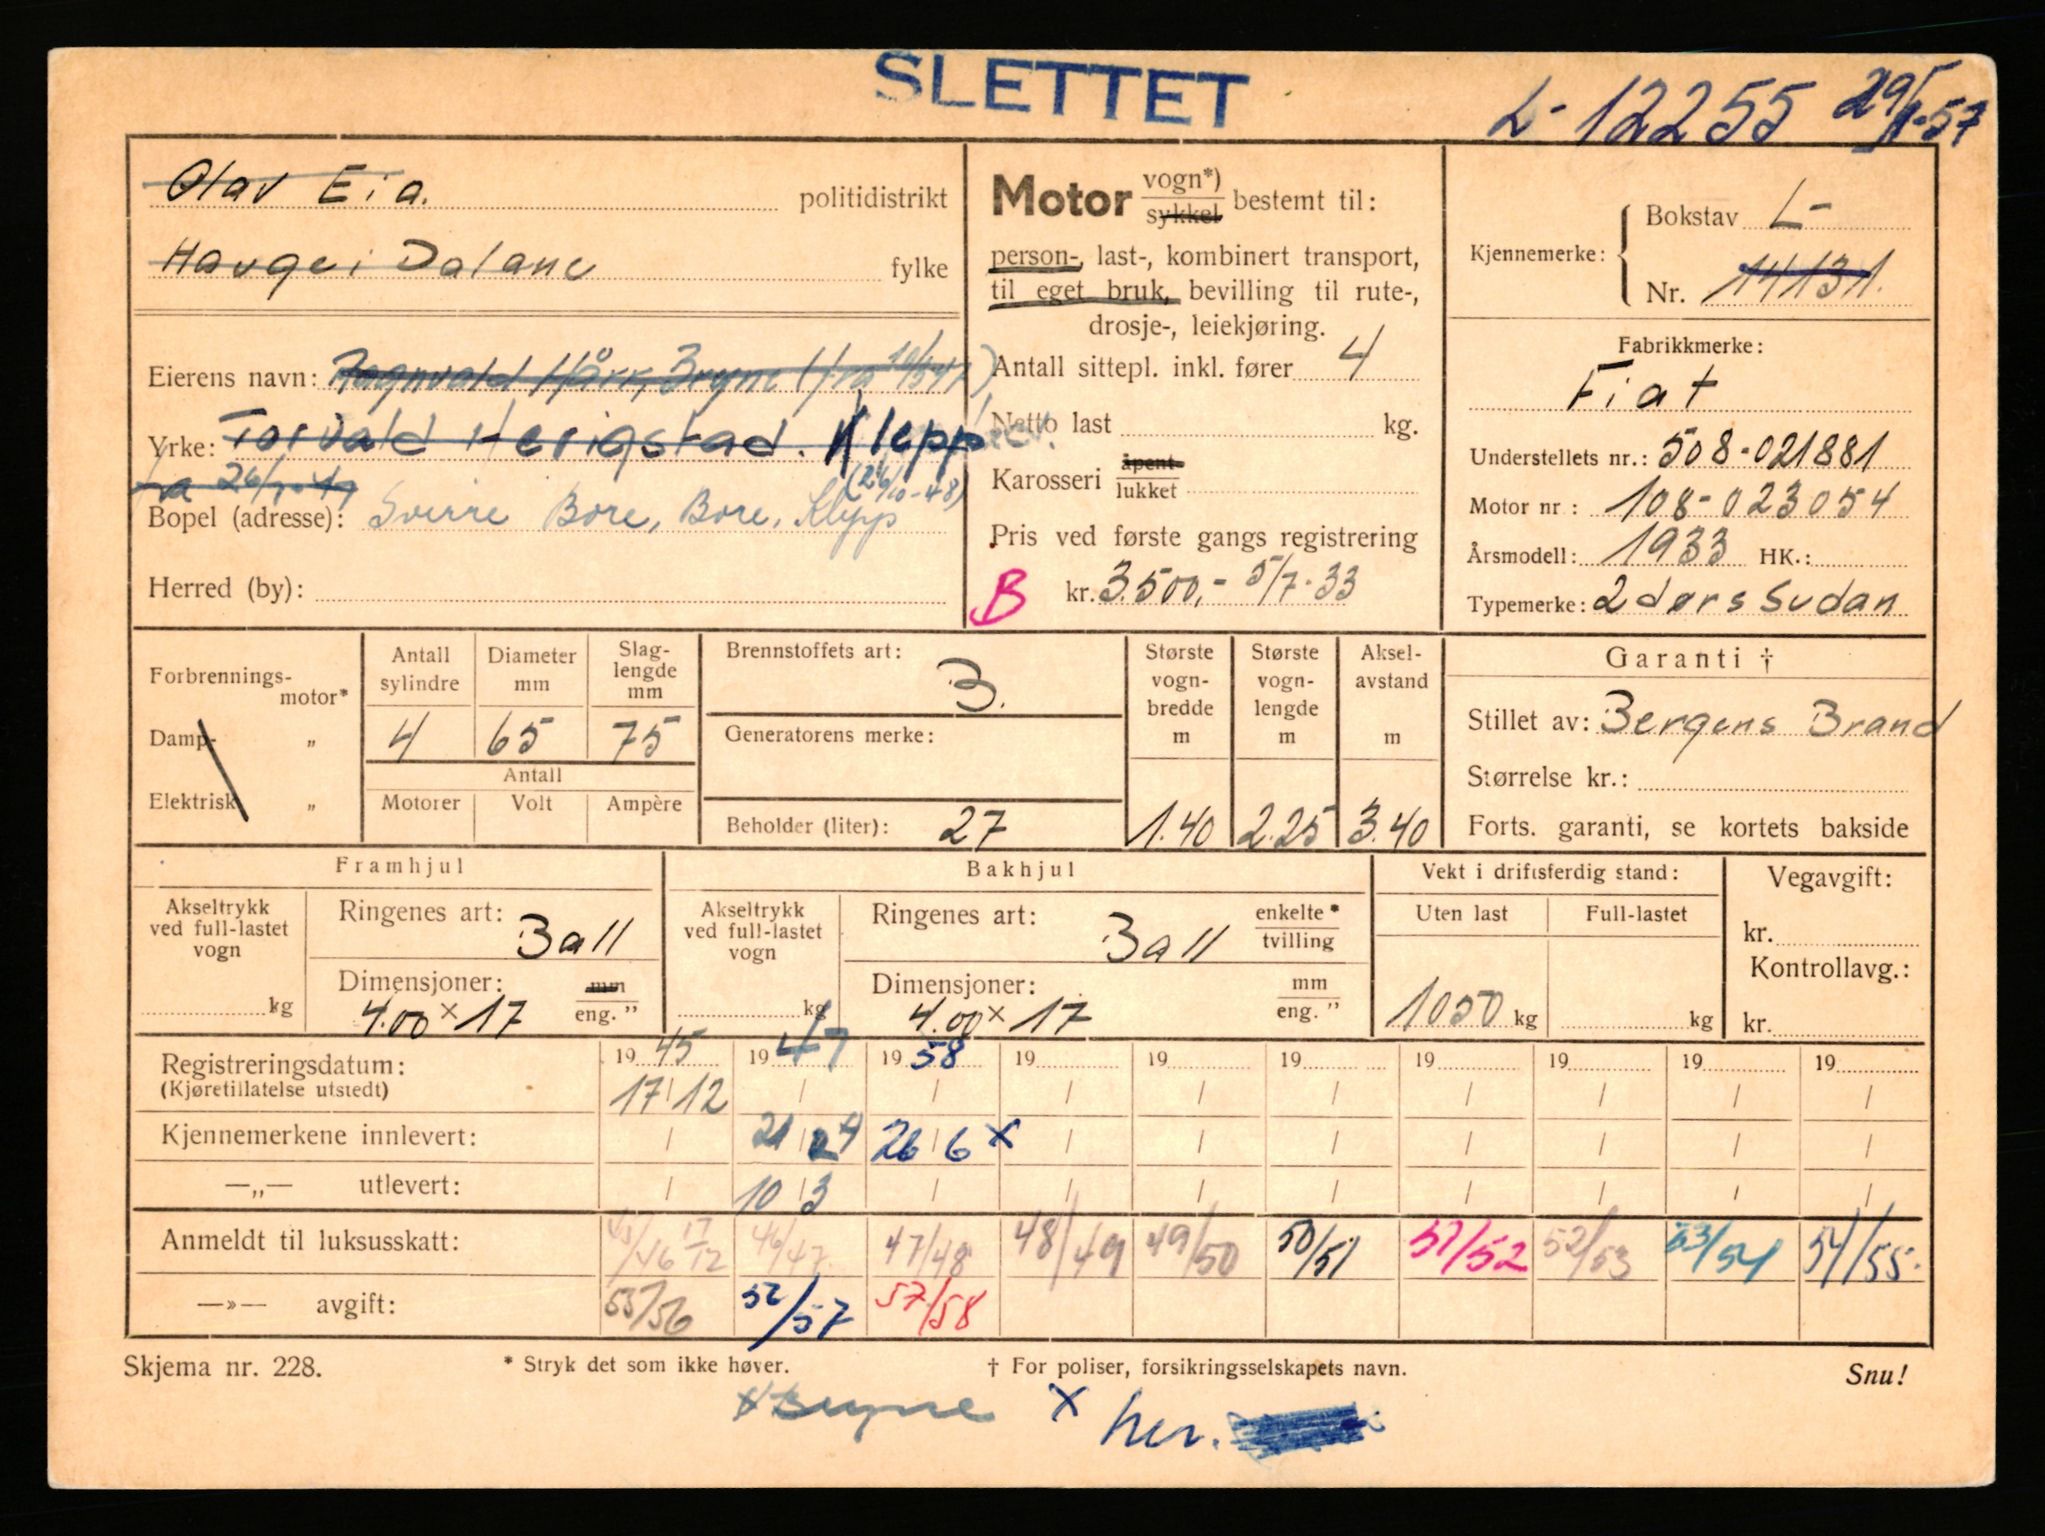 SLETTET
L-12255
Olav Eia. politidistrikt
Haugei Dalane fylke
Eierens navn: Ragnvald Håvr, Bryne (fra 10/3 47)
Yrke: Torvald Herigstad. Klepp
fra 26/7-47
Bopel (adresse): Sverre Bore, Bore, Klepp (26/10-48)
Herred (by):
Motor vogn*) sykkel bestemt til:
person-, last-, kombinert transport,
til eget bruk, bevilling til rute-,
drosje-, leiekjøring.
Antall sittepl. inkl. fører 4
Netto last kg.
Karosseri åpent lukket
Pris ved første gangs registrering
B kr. 3.500,- 5/7-33
Kjennemerke: Bokstav L-
Nr. 14131.
Fabrikkmerke:
Fiat
Understellets nr.: 508-021881
Motor nr: 108-023054
Årsmodell: 1933 HK.:
Typemerke: 2dørs Sudan
Forbrennings-
motor*
Damp- „
Elektrisk „
Antall sylindre Diameter mm Slag-lengde mm
4 65 75
Antall
Motorer Volt Ampère
Brennstoffets art: B.
Generatorens merke:
Beholder (liter): 27
Største vogn-bredde m 1.40
Største vogn-lengde m 2.25
Aksel-avstand m 3.40
Garanti †
Stillet av: Bergens Brand
Størrelse kr.:
Forts. garanti, se kortets bakside
Framhjul
Akseltrykk ved full-lastet vogn kg
Ringenes art: Ball
Dimensjoner: mm eng. "
4.00 x 17
Bakhjul
Akseltrykk ved full-lastet vogn kg
Ringenes art: Ball enkelte* tvilling
Dimensjoner: mm eng. "
4.00 x 17
Vekt i driftsferdig stand:
Uten last Full-lastet
1050 kg kg
Vegavgift:
kr.
Kontrollavg.:
kr.
Registreringsdatum: 1945 1947 1958 19 19 19 19 19 19 19
(Kjøretillatelse utstedt) 17/12 / / / / / / / / /
Kjennemerkene innlevert: / 21/2 26/6 x / / / / / / /
—„— utlevert: / 10/3 / / / / / / / /
Anmeldt til luksusskatt: 45/46 17/12 46/47 47/48 48/49 49/50 50/51 51/52 52/53 53/54 54/55.
—»— avgift: 55/56 52/57 57/58
Skjema nr. 228. * Stryk det som ikke høver. † For poliser, forsikringsselskapets navn. Snu!
x Bryne x her.